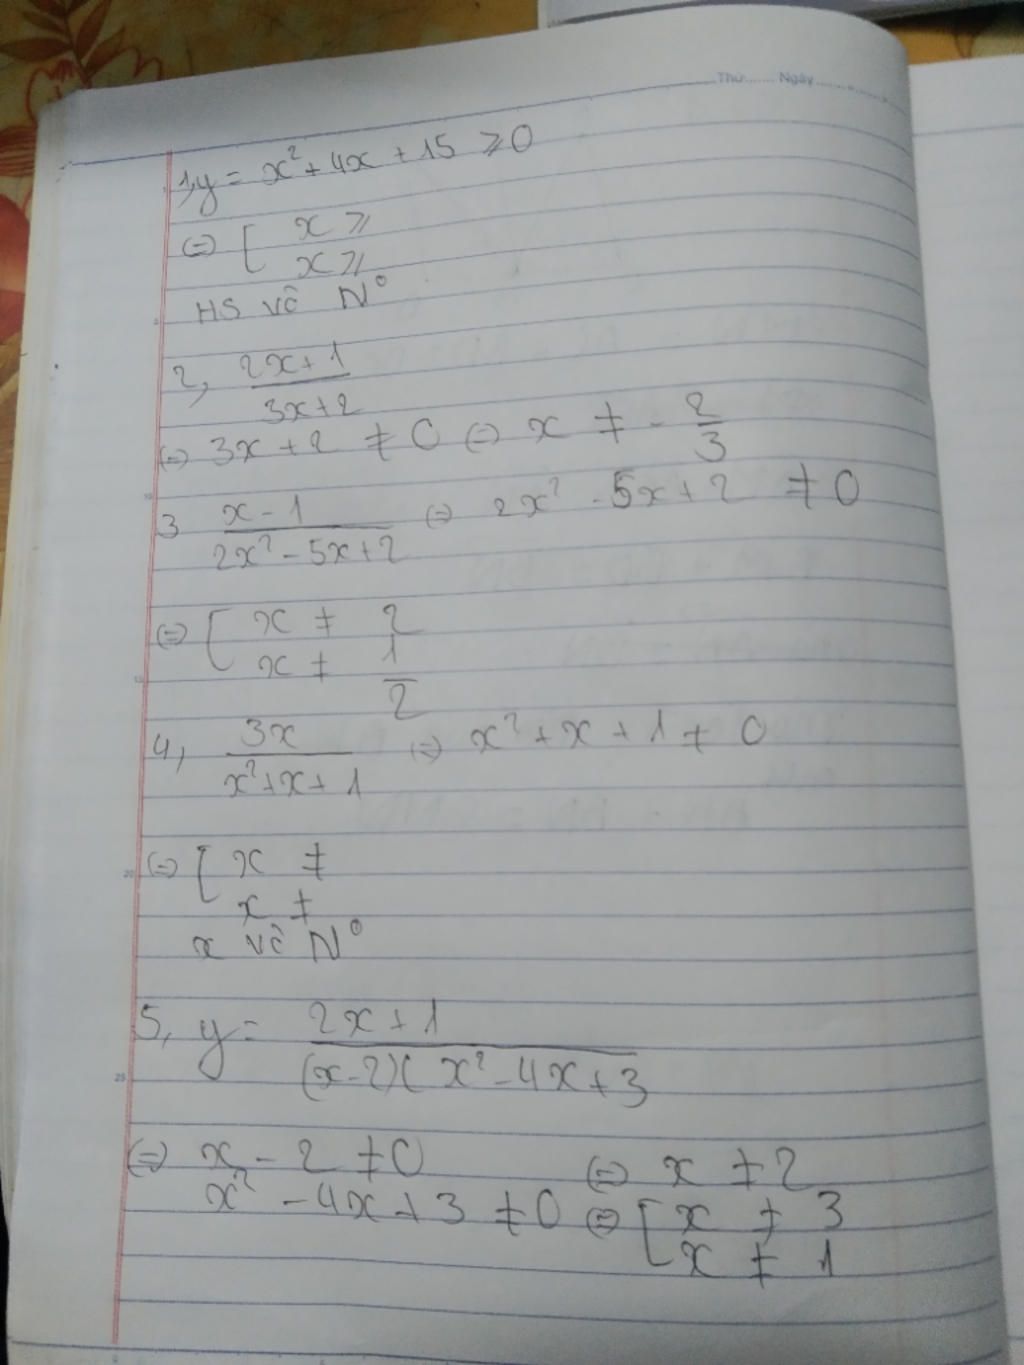 Thứ....... Ngày...............
1, y = x² + 4x + 15 ⩾ 0
(=) [ x ⩾
x ⩾
HS vô N⁰
2, (2x+1)/(3x+2)
(=) 3x + 2 ≠ 0 (=) x ≠ - 2/3
3 (x - 1)/(2x² - 5x + 2) (=) 2x² - 5x + 2 ≠ 0
(=) [ x ≠ 2
x ≠ 1/2
4, 3x/(x² + x + 1) (=) x² + x + 1 ≠ 0
(=) [ x ≠
x ≠
x vô N⁰
5, y = (2x + 1)/((x-2)(x² - 4x + 3)
(=) x - 2 ≠ 0 (=) x ≠ 2
x² - 4x + 3 ≠ 0 (=) [ x ≠ 3
x ≠ 1